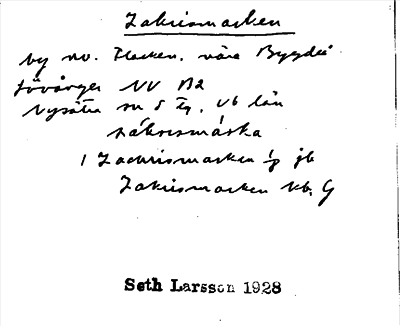 Zakrismarken
by nv. Flarken, nära Bygdeå
Lövånger NV B2
Nysätra sn 5 Tg. Vb län
sákrismárka
1 Zachrismarken jb
Zakrismarken kb. G
Seth Larsson 1928